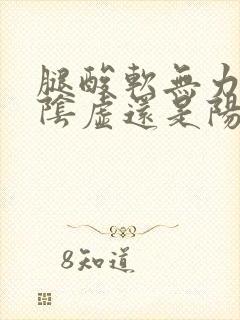 腿酸軟無力
陰虛還是陽
8知道